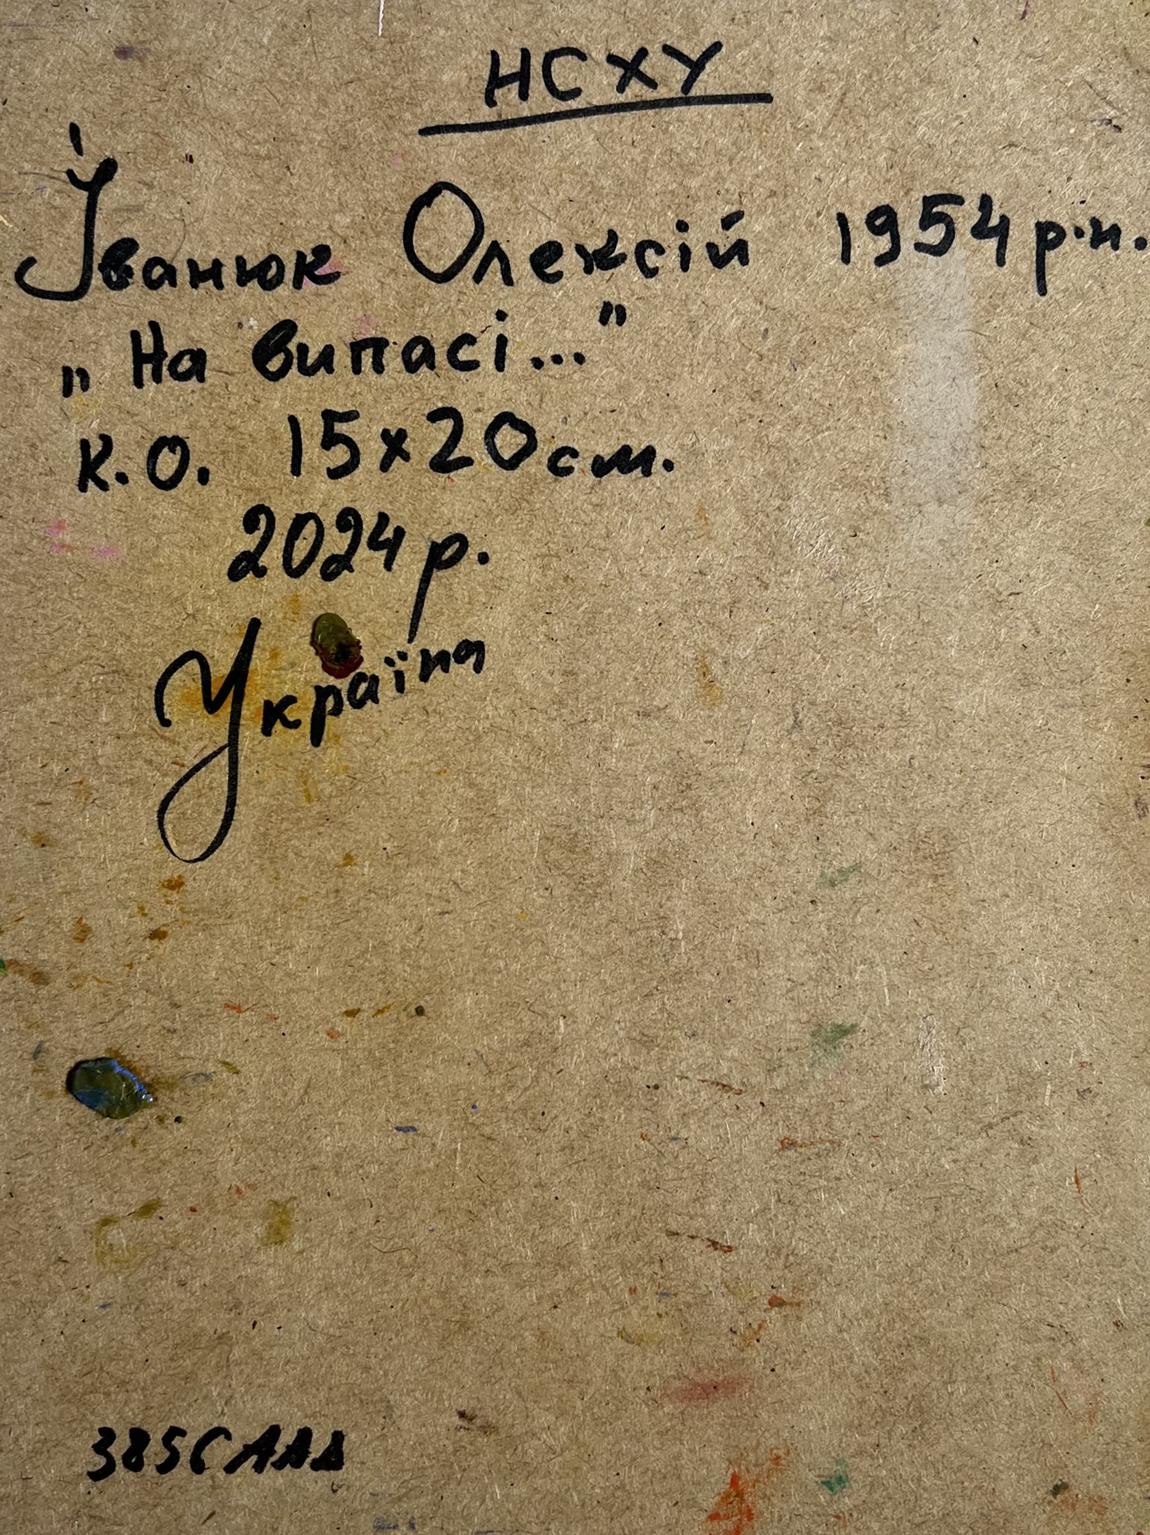 НСХУ
Іванюк Олексій 1954 р.н.
„На випасі..."
К.О. 15x20 см.
2024 р.
Україна